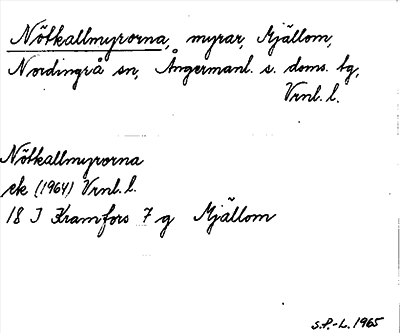 Nötkallmyrorna, myrar, Mjällom,
Nordingrå sn, Ångermanl. s. doms. tg,
Vrnl. l.
Nötkallmyrorna
ek (1964) Vrnl. l.
18 I Kramfors 7 g Mjällom
S.P.-L. 1965